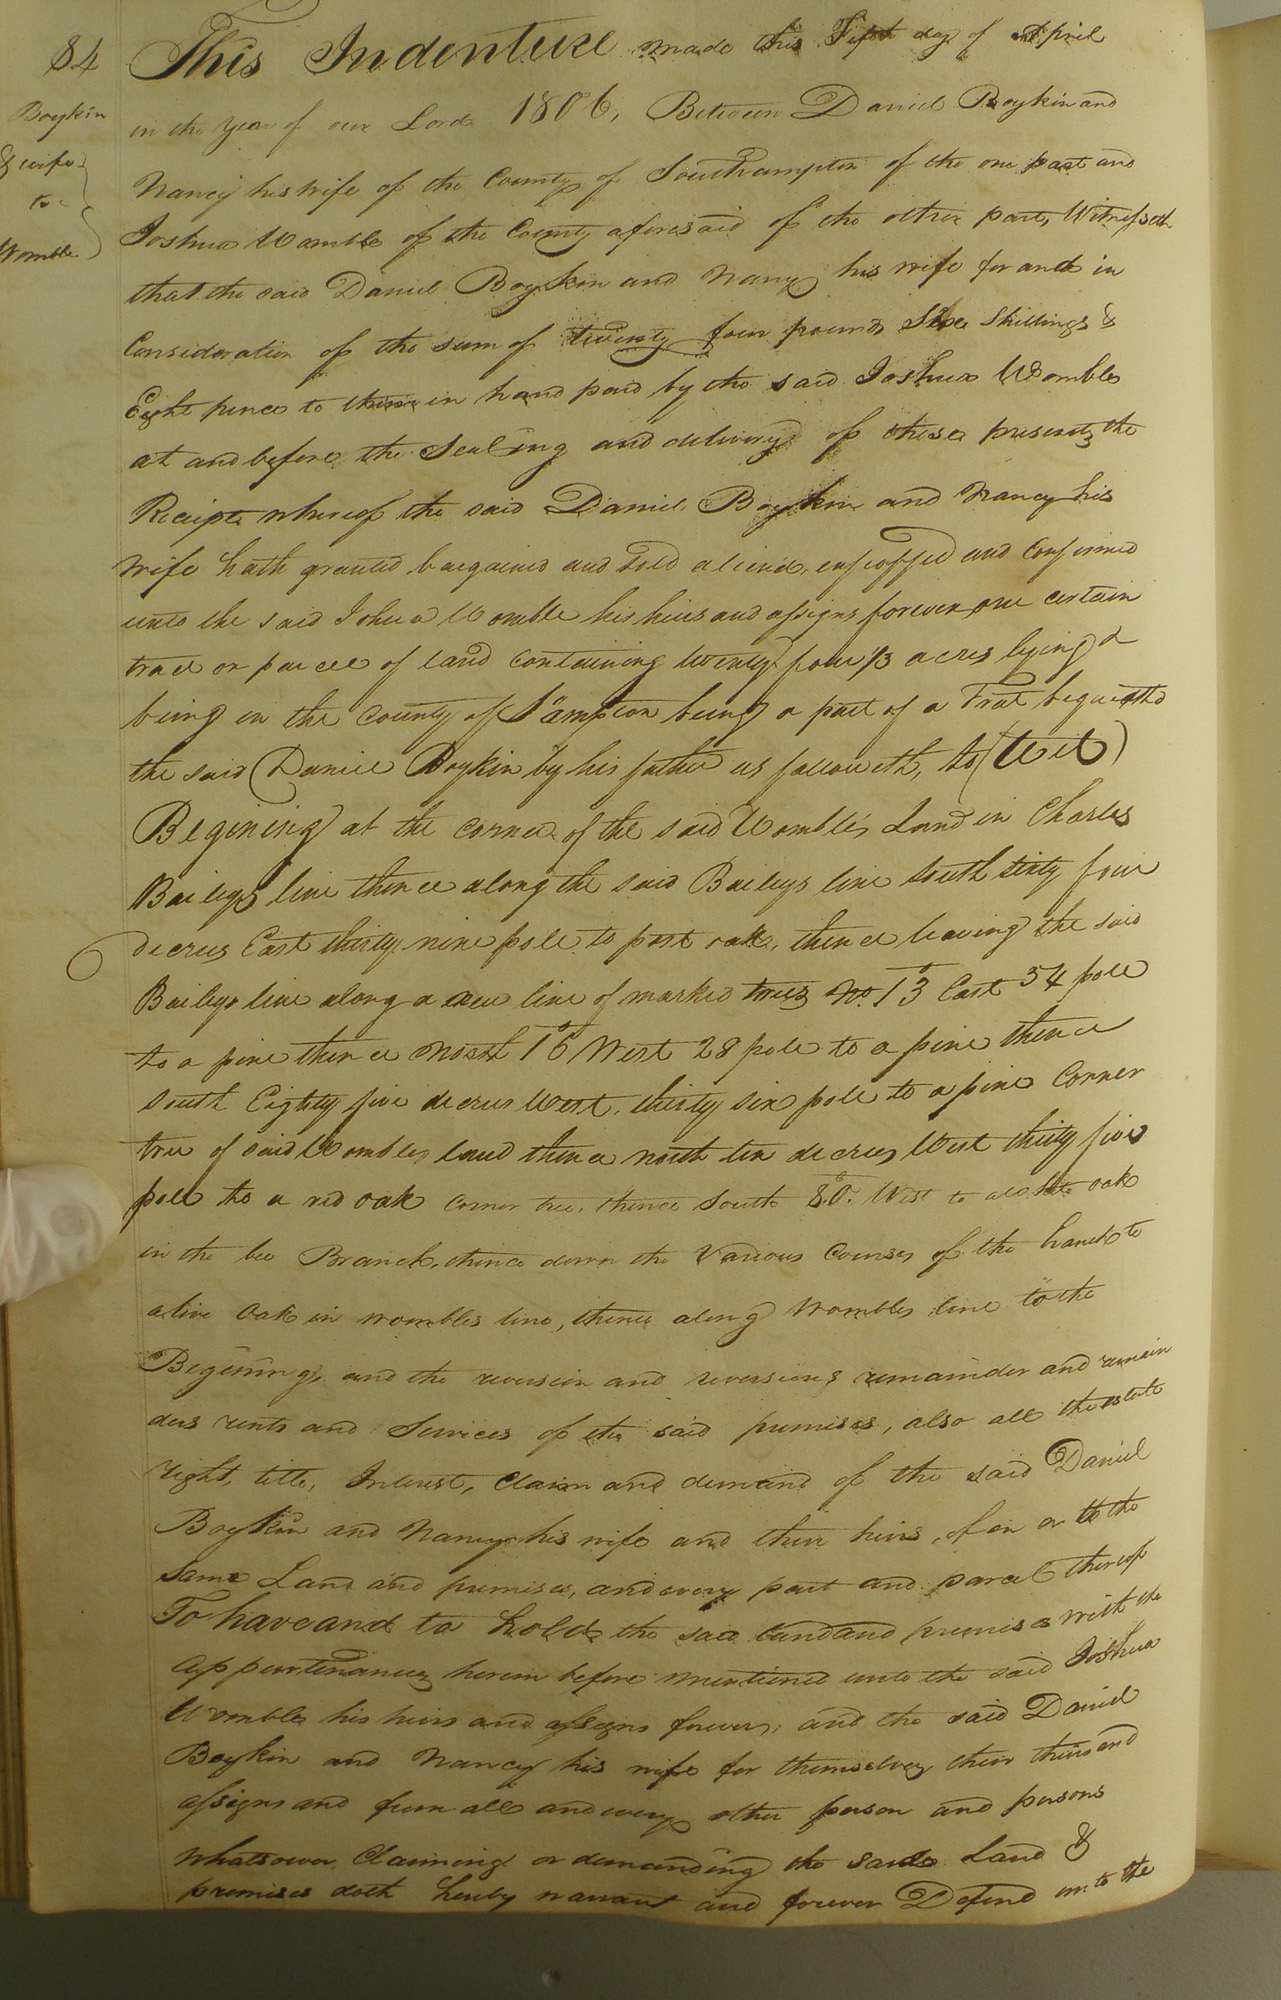 84
Boykin
& wife
to
Womble
This Indenture made this First day of April
in the year of our Lord 1806, Between Daniel Boykin and
Nancy his wife of the County of Southampton of the one part and
Joshua Womble of the County aforesaid of the other part, Witnesseth
that the said Daniel Boykin and Nancy his wife for and in
Consideration of the sum of twenty four pounds Six Shillings &
Eight pence to them in hand paid by the said Joshua Womble
at and before the Sealing and delivery of these presents the
Receipt whereof the said Daniel Boykin and Nancy his
wife hath granted bargained and sold aliend, enfeoffed and confirmed
unto the said Johua Womble his heirs and assigns forever one certain
tract or parcel of land containing twenty four 1/3 acres lying &
being in the County of S'ampton being a part of a Trat bequeathd
the said Daniel Boykin by his father as followeth, to (Wit)
Begining at the corner of the said Womble's Land in Charles
Baileys line thence along the said Baileys line South sixty four
decrees East thirty nine pole to post oak, thence leaving the said
Baileys line along a new line of marked trees No. 13° East 34 pole
to a pine thence North 16° West 28 pole to a pine thence
South Eighty five decrees West, thirty six pole to a pine Corner
tree of said Wombles land thence north ten decrees West thirty five
pole to a red oak corner tree, thence South 80°. West to a white oak
in the Branch, thence down the Various Courses of the branch to
a live Oak in wombles line, thence along Wombles line to the
Begining, and the reversion and reversions remainder and remain
ders rents and Services of the said premises, also all the estate
right, title, Interest, Claim and demand of the said Daniel
Boykin and Nancy his wife and their heirs, of in or to the
same Land and premises, and every part and parcel thereof
To have and to hold the said land and premises with the
appurtenances herein before mentioned unto the said Joshua
Womble his heirs and assigns forever, and the said Daniel
Boykin and Nancy his wife for themselves their heirs and
assigns and from all and every other person and persons
whatsoever Claiming or demanding the said Land &
premises doth hereby warrant and forever Defend unto the